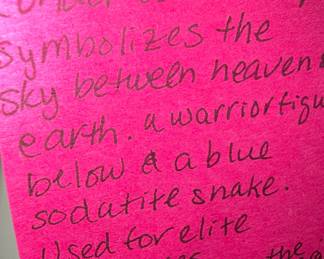 symbolizes the
sky between heaven &
earth. a warrior figu
below & a blue
sodatite snake.
Used for elite
the